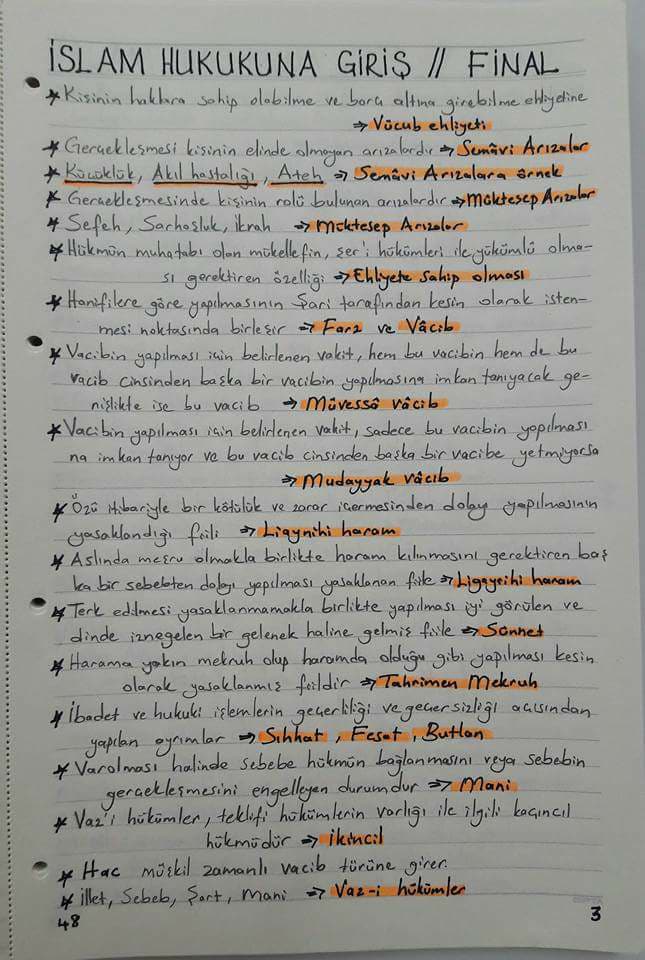 İSLAM HUKUKUNA GİRİŞ // FİNAL
* Kişinin haklara sahip olabilme ve borç altına girebilme ehliyetine
⇒ Vücub ehliyeti
* Gerçekleşmesi kişinin elinde olmayan arızalardır ⇒ Semâvi Arızalar
* Küçüklük, Akıl hastalığı, Ateh ⇒ Semâvi Arızalara örnek
* Gerçekleşmesinde kişinin rolü bulunan arızalardır ⇒ Müktesep Arızalar
* Sefeh, Sarhoşluk, İkrah ⇒ Müktesep Arızalar
* Hükmün muhatabı olan mükellefin, şer'i hükümleri ile yükümlü olma-
sı gerektiren özelliği ⇒ Ehliyete sahip olması
* Hanifilere göre yapılmasının Şari tarafından kesin olarak isten-
mesi noktasında birleşir ⇒ Farz ve Vâcib
* Vacibin yapılması için belirlenen vakit, hem bu vacibin hem de bu
vacib cinsinden başka bir vacibin yapılmasına imkan tanıyacak ge-
nişlikte ise bu vacib ⇒ Müvessâ vâcib
* Vacibin yapılması için belirlenen vakit, sadece bu vacibin yapılması
na imkan tanıyor ve bu vacib cinsinden başka bir vacibe yetmiyorsa
⇒ Mudayyak vâcib
* Özü itibariyle bir kötülük ve zarar içermesinden dolayı yapılmasının
yasaklandığı fiili ⇒ Liaynihi haram
* Aslında meşru olmakla birlikte haram kılınmasını gerektiren baş
ka bir sebebten dolayı yapılması yasaklanan fiile ⇒ Ligayrihi haram
* Terk edilmesi yasaklanmamakla birlikte yapılması iyi görülen ve
dinde iznegelen bir gelenek haline gelmiş fiile ⇒ Sünnet
* Harama yakın mekruh olup haramda olduğu gibi yapılması kesin
olarak yasaklanmış fiildir ⇒ Tahrimen Mekruh
* İbadet ve hukuki işlemlerin geçerliliği ve geçersizliği açısından
yapılan ayrımlar ⇒ Sıhhat, Fesat, Butlan
* Varolması halinde sebebe hükmün bağlanmasını veya sebebin
gerçekleşmesini engelleyen durumdur ⇒ Mani
* Vaz'i hükümler, teklifi hükümlerin varlığı ile ilgili kaçıncıl
hükmüdür ⇒ İkincil
* Hac müşkil zamanlı vacib türüne girer.
* İllet, Sebeb, Şart, Mani ⇒ Vaz-i hükümler
48
3